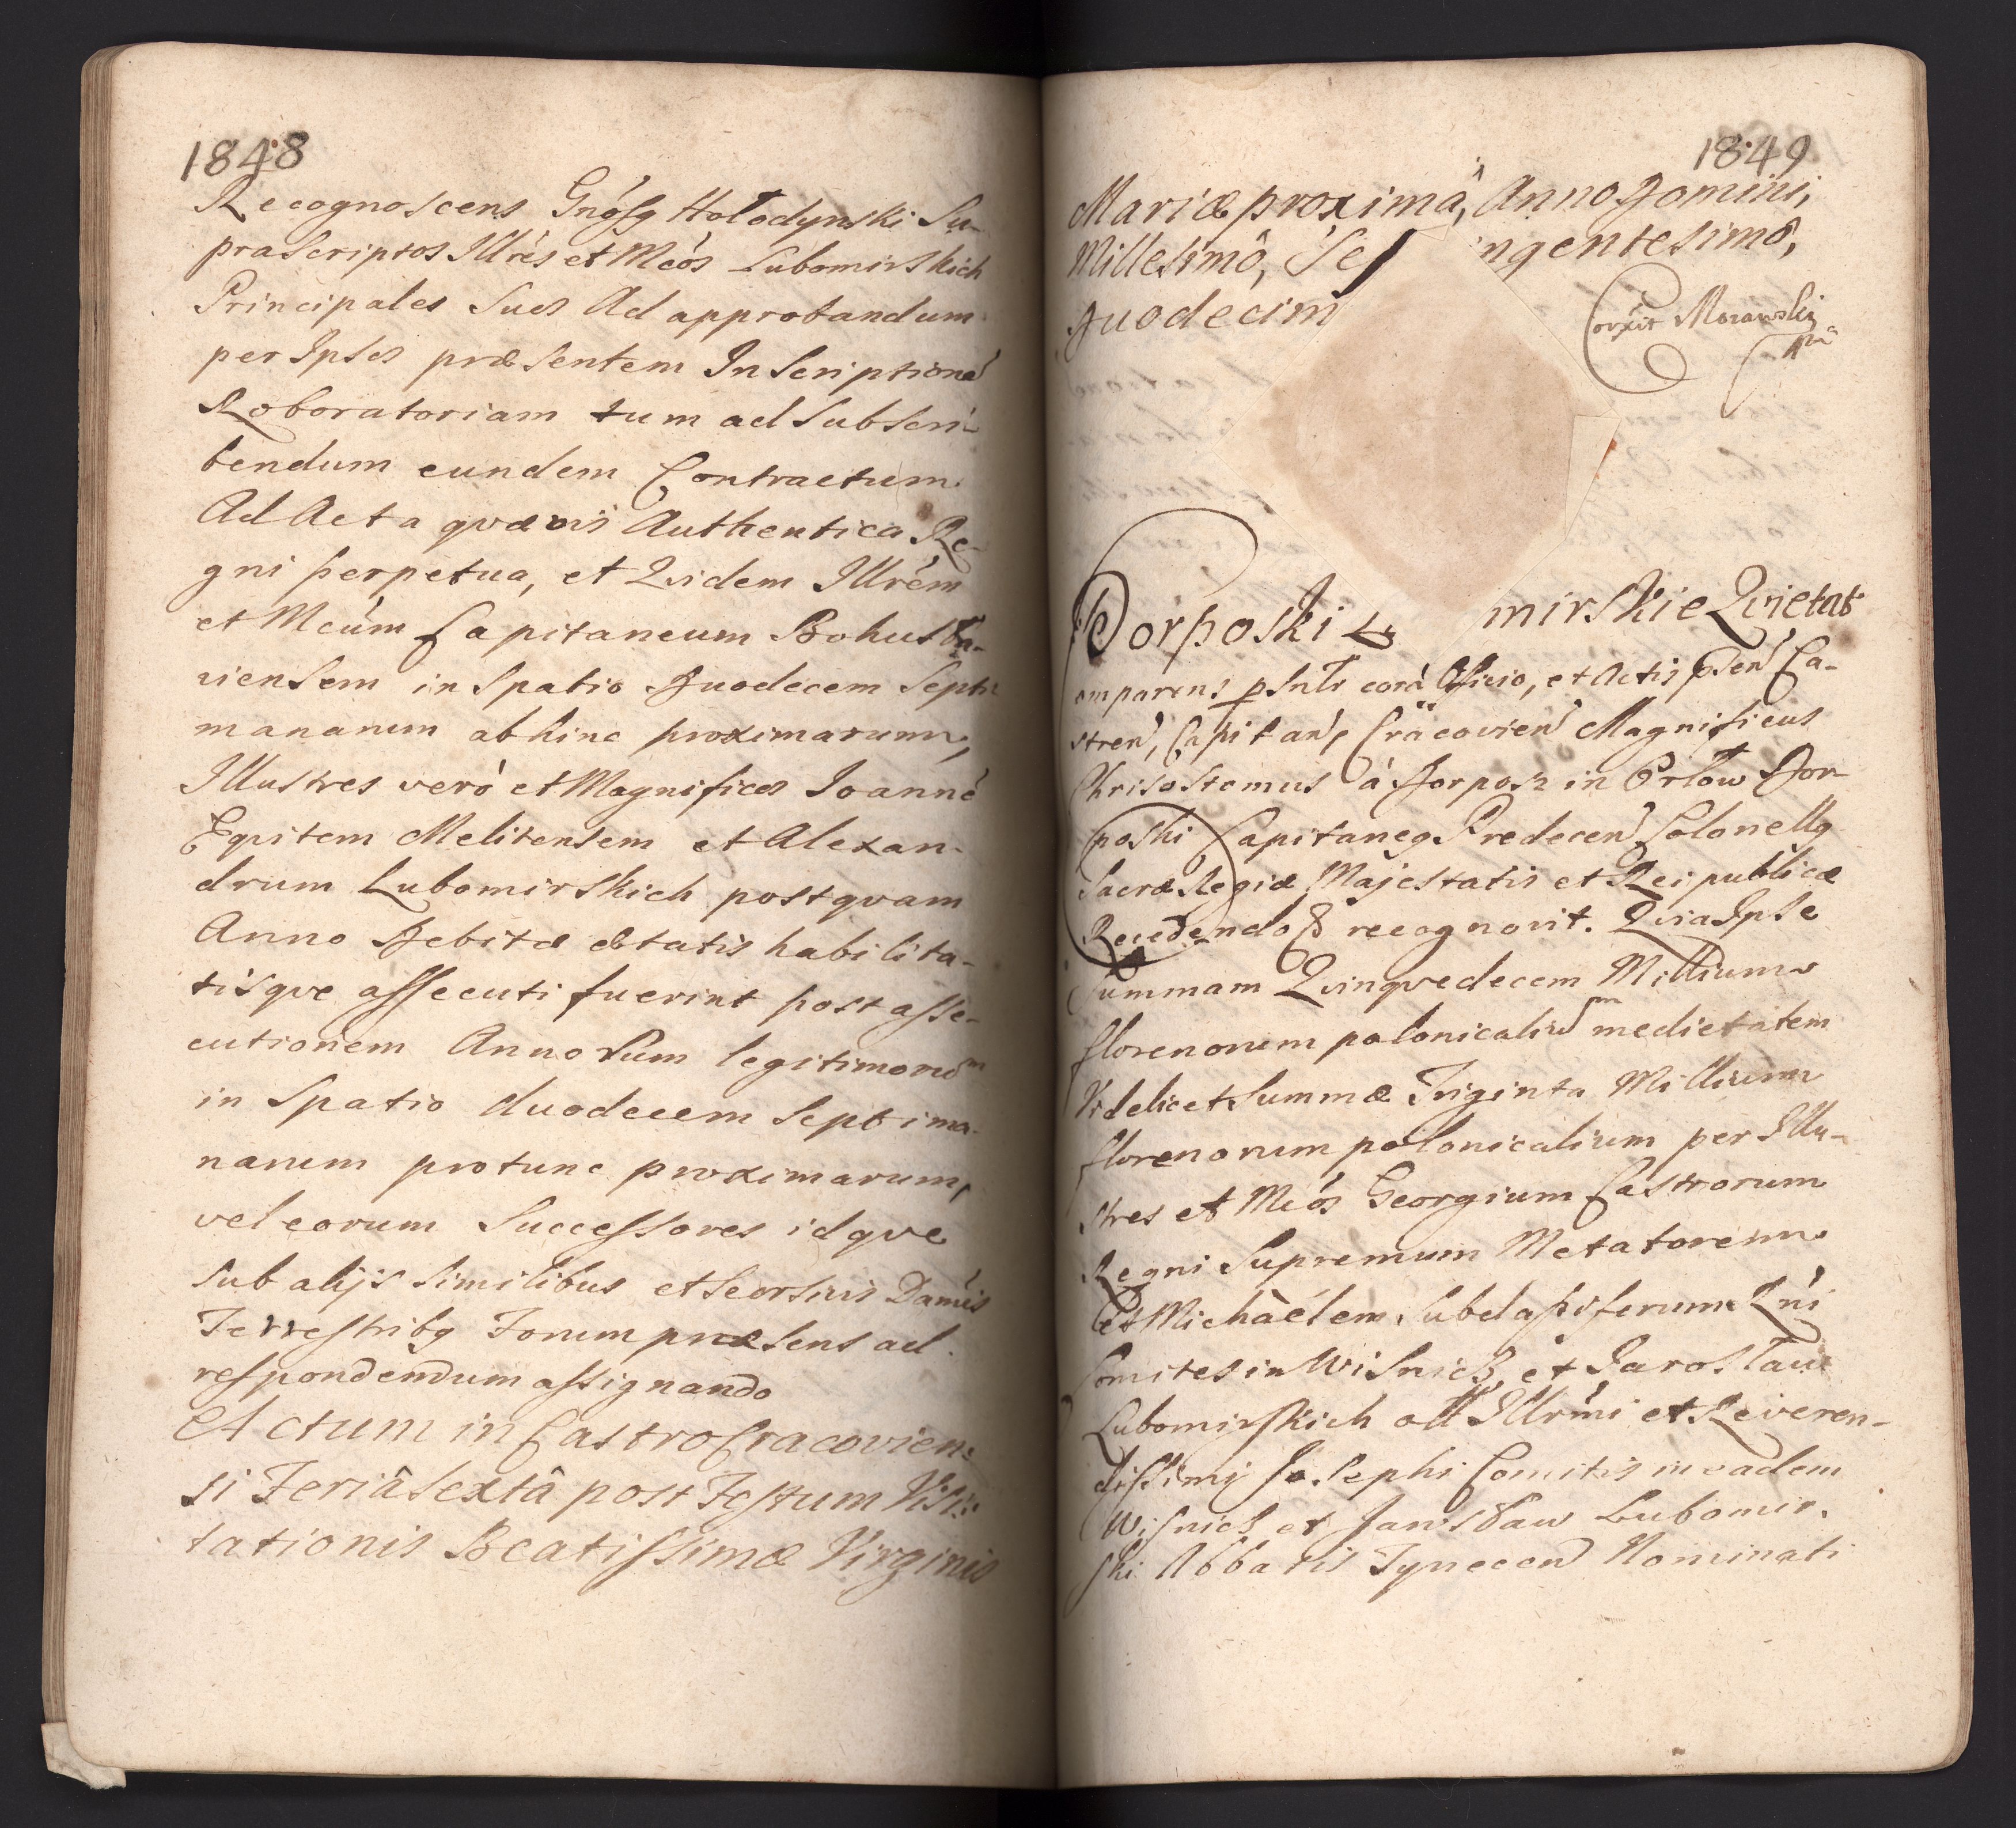 1848
Recognoscens Gnosq Hołodynski Su-
praScriptos Illrés et Mcós Lubomirskich
Principales Suos Ad approbandum
per Ipsos præsentem Inscriptioné
Roboratoriam tum ad Subscri-
bendum eundem Contractum
Ad Acta qvævis Authentica Re-
gni perpetua, et Qvidem Illrém
et Mcúm Capitaneum Bohusła-
viensem in Spatio Duodecem Septi
manarum abhinc proximarum,
Illustres veró et Magnificos Joanné
Eqvitem Melitensem et Alexan-
drum Lubomirskich postqvam
Anno Debitæ ætatis habilita-
tisqve assecuti fuerint post asse-
cutionem Annorum legitimorum
in Spatio duodecem Septima-
narum protunc proximarum,
vel eorum Successores idqve
Sub alijs similibus et seorsivis Damnis
Terrestribq Forum præsens ad
respondendum assignando
Actum in Castro Cracovien-
si Feriâ Sextâ post Festum Visi-
tationis Beatissimæ Virginis
1849
Mariæ proximâ, Anno Domini,
Millesimô, Se ngentesimô,
Duodecim
Corxit Morawski
mp
Dorposki mirskie Qvietat
omparens psnlr corá Officio, et Actis psen Ca-
stren, Capitan, Cracovien Magnificus
Chrisostomus á Dorposz in Orłow Dor-
poski Capitaneq Predecen Colonellq
Sacræ Regiæ Majestatis et Reipublicæ
Recedendo recognovit. Qvia Ipse
Summam Qvinqvedecem Millium
florenorum polonicaliu medietatem
Videlicet Summæ Triginta Millium
florenorum polonicalium per Illu-
stres et Mcós Georgium Castrorum
Regni Supremum Metatorem
et Michàélem, Subdapiferum Rni
Comites in Wisnicz, et Jarosław
Lubomirskich olt Illrmi et Reveren-
dissimi Josephi Comitis in eadem
Wisnicz et Jarosław Lubomir-
ski Abbatis Tynecen Nominati